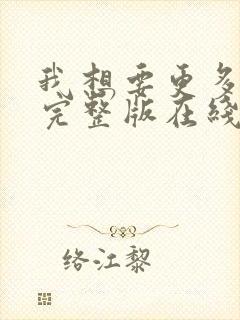 我想要更多
完整版在线
络江黎